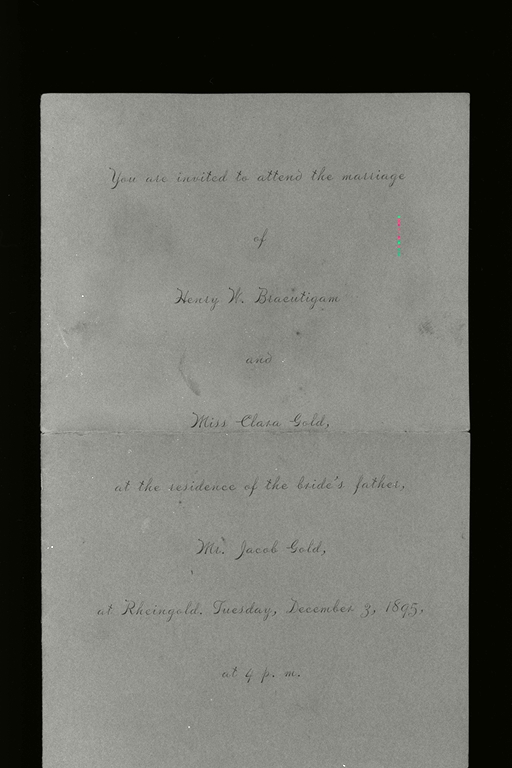 You are invited to attend the marriage
of
Henry W. Braeutigam
and
Miss Clara Gold,
at the residence of the bride's father,
Mr. Jacob Gold,
at Rheingold, Tuesday, December 3, 1895,
at 4 p. m.